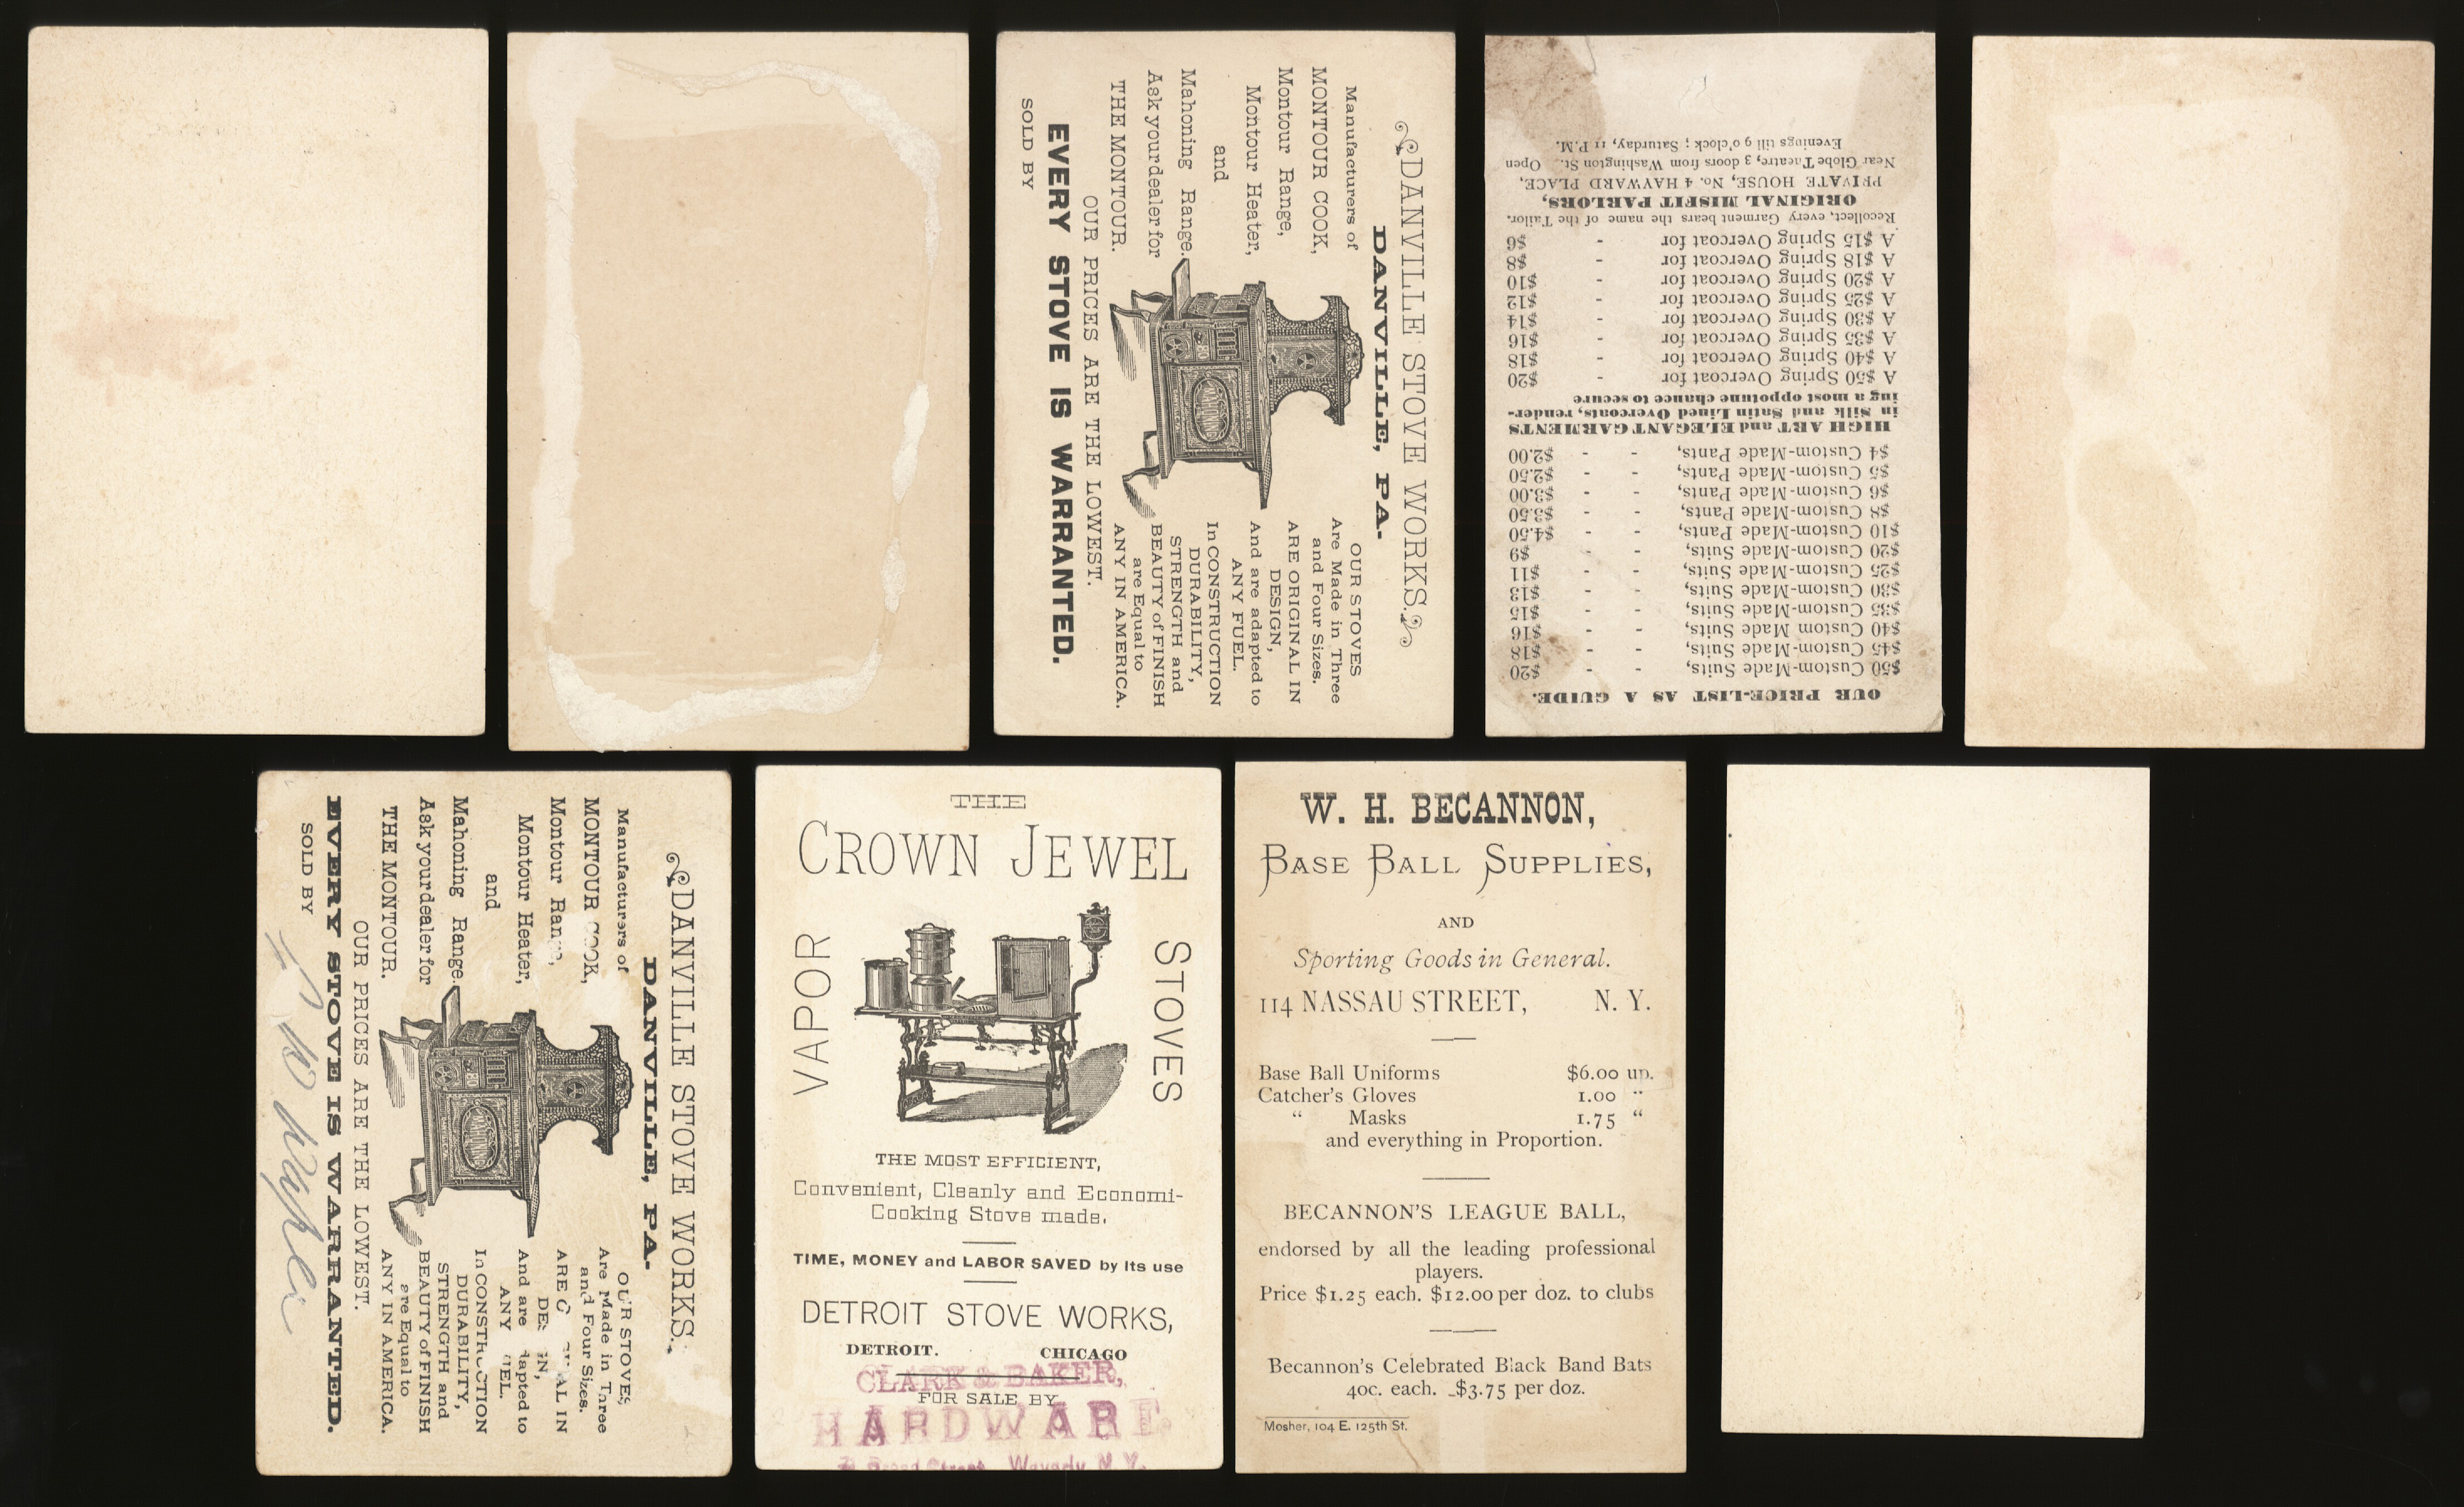 DANVILLE STOVE WORKS.
DANVILLE, PA.
Manufacturers of
MONTOUR COOK,
Montour Range,
Montour Heater,
and
Mahoning Range.
Ask your dealer for
THE MONTOUR.
OUR STOVES
Are Made in Three
and Four Sizes.
ARE ORIGINAL IN
DESIGN,
And are adapted to
ANY FUEL.
In CONSTRUCTION
DURABILITY,
STRENGTH and
BEAUTY of FINISH
are Equal to
ANY IN AMERICA.
OUR PRICES ARE THE LOWEST.
EVERY STOVE IS WARRANTED.
SOLD BY
OUR PRICE-LIST AS A GUIDE.
$50 Custom-Made Suits, - - $20
$45 Custom-Made Suits, - - $18
$40 Custom Made Suits, - - $16
$35 Custom-Made Suits, - - $15
$30 Custom-Made Suits, - - $13
$25 Custom-Made Suits, - - $11
$20 Custom-Made Suits, - - $9
$10 Custom-Made Pants, - - $4.50
$8 Custom-Made Pants, - - $3.50
$6 Custom-Made Pants, - - $3.00
$5 Custom-Made Pants, - - $2.50
$4 Custom-Made Pants, - - $2.00
HIGH ART and ELEGANT GARMENTS
in Silk and Satin Lined Overcoats, render-
ing a most oppotune chance to secure
A $50 Spring Overcoat for - $20
A $40 Spring Overcoat for - $18
A $35 Spring Overcoat for - $16
A $30 Spring Overcoat for - $14
A $25 Spring Overcoat for - $12
A $20 Spring Overcoat for - $10
A $18 Spring Overcoat for - $8
A $15 Spring Overcoat for - $6
Recollect, every Garment bears the name of the Tailor.
ORIGINAL MISFIT PARLORS,
PRIVATE HOUSE, No. 4 HAYWARD PLACE,
Near Globe Theatre, 3 doors from Washington St. Open
Evenings till 9 o'clock; Saturday, 11 P.M.
DANVILLE STOVE WORKS.
DANVILLE, PA.
Manufacturers of
MONTOUR COOK,
Montour Range,
Montour Heater,
and
Mahoning Range.
Ask your dealer for
THE MONTOUR.
OUR STOVES
Are Made in Three
and Four Sizes.
ARE IN
And are adapted to
ANY
In CONSTRUCTION
DURABILITY,
STRENGTH and
BEAUTY of FINISH
are Equal to
ANY IN AMERICA.
OUR PRICES ARE THE LOWEST.
EVERY STOVE IS WARRANTED.
SOLD BY
THE
CROWN JEWEL
VAPOR STOVES
THE MOST EFFICIENT,
Convenient, Cleanly and Economi-
Cooking Stove made.
TIME, MONEY and LABOR SAVED by Its use
DETROIT STOVE WORKS,
DETROIT. CHICAGO
CLARK & BAKER,
FOR SALE BY
HARDWARE.
Broad Street, Waverly N.Y.
W. H. BECANNON,
BASE BALL SUPPLIES,
AND
Sporting Goods in General.
114 NASSAU STREET, N. Y.
Base Ball Uniforms $6.00 up.
Catcher's Gloves 1.00 "
" Masks 1.75 "
and everything in Proportion.
BECANNON'S LEAGUE BALL,
endorsed by all the leading professional
players.
Price $1.25 each. $12.00 per doz. to clubs
Becannon's Celebrated Black Band Bats
40c. each. $3.75 per doz.
Mosher, 104 E. 125th St.